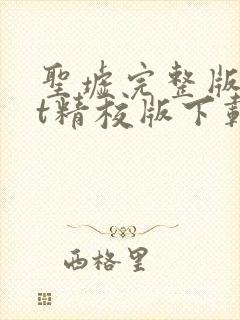 聖墟完整版
t精校版下載
西格里